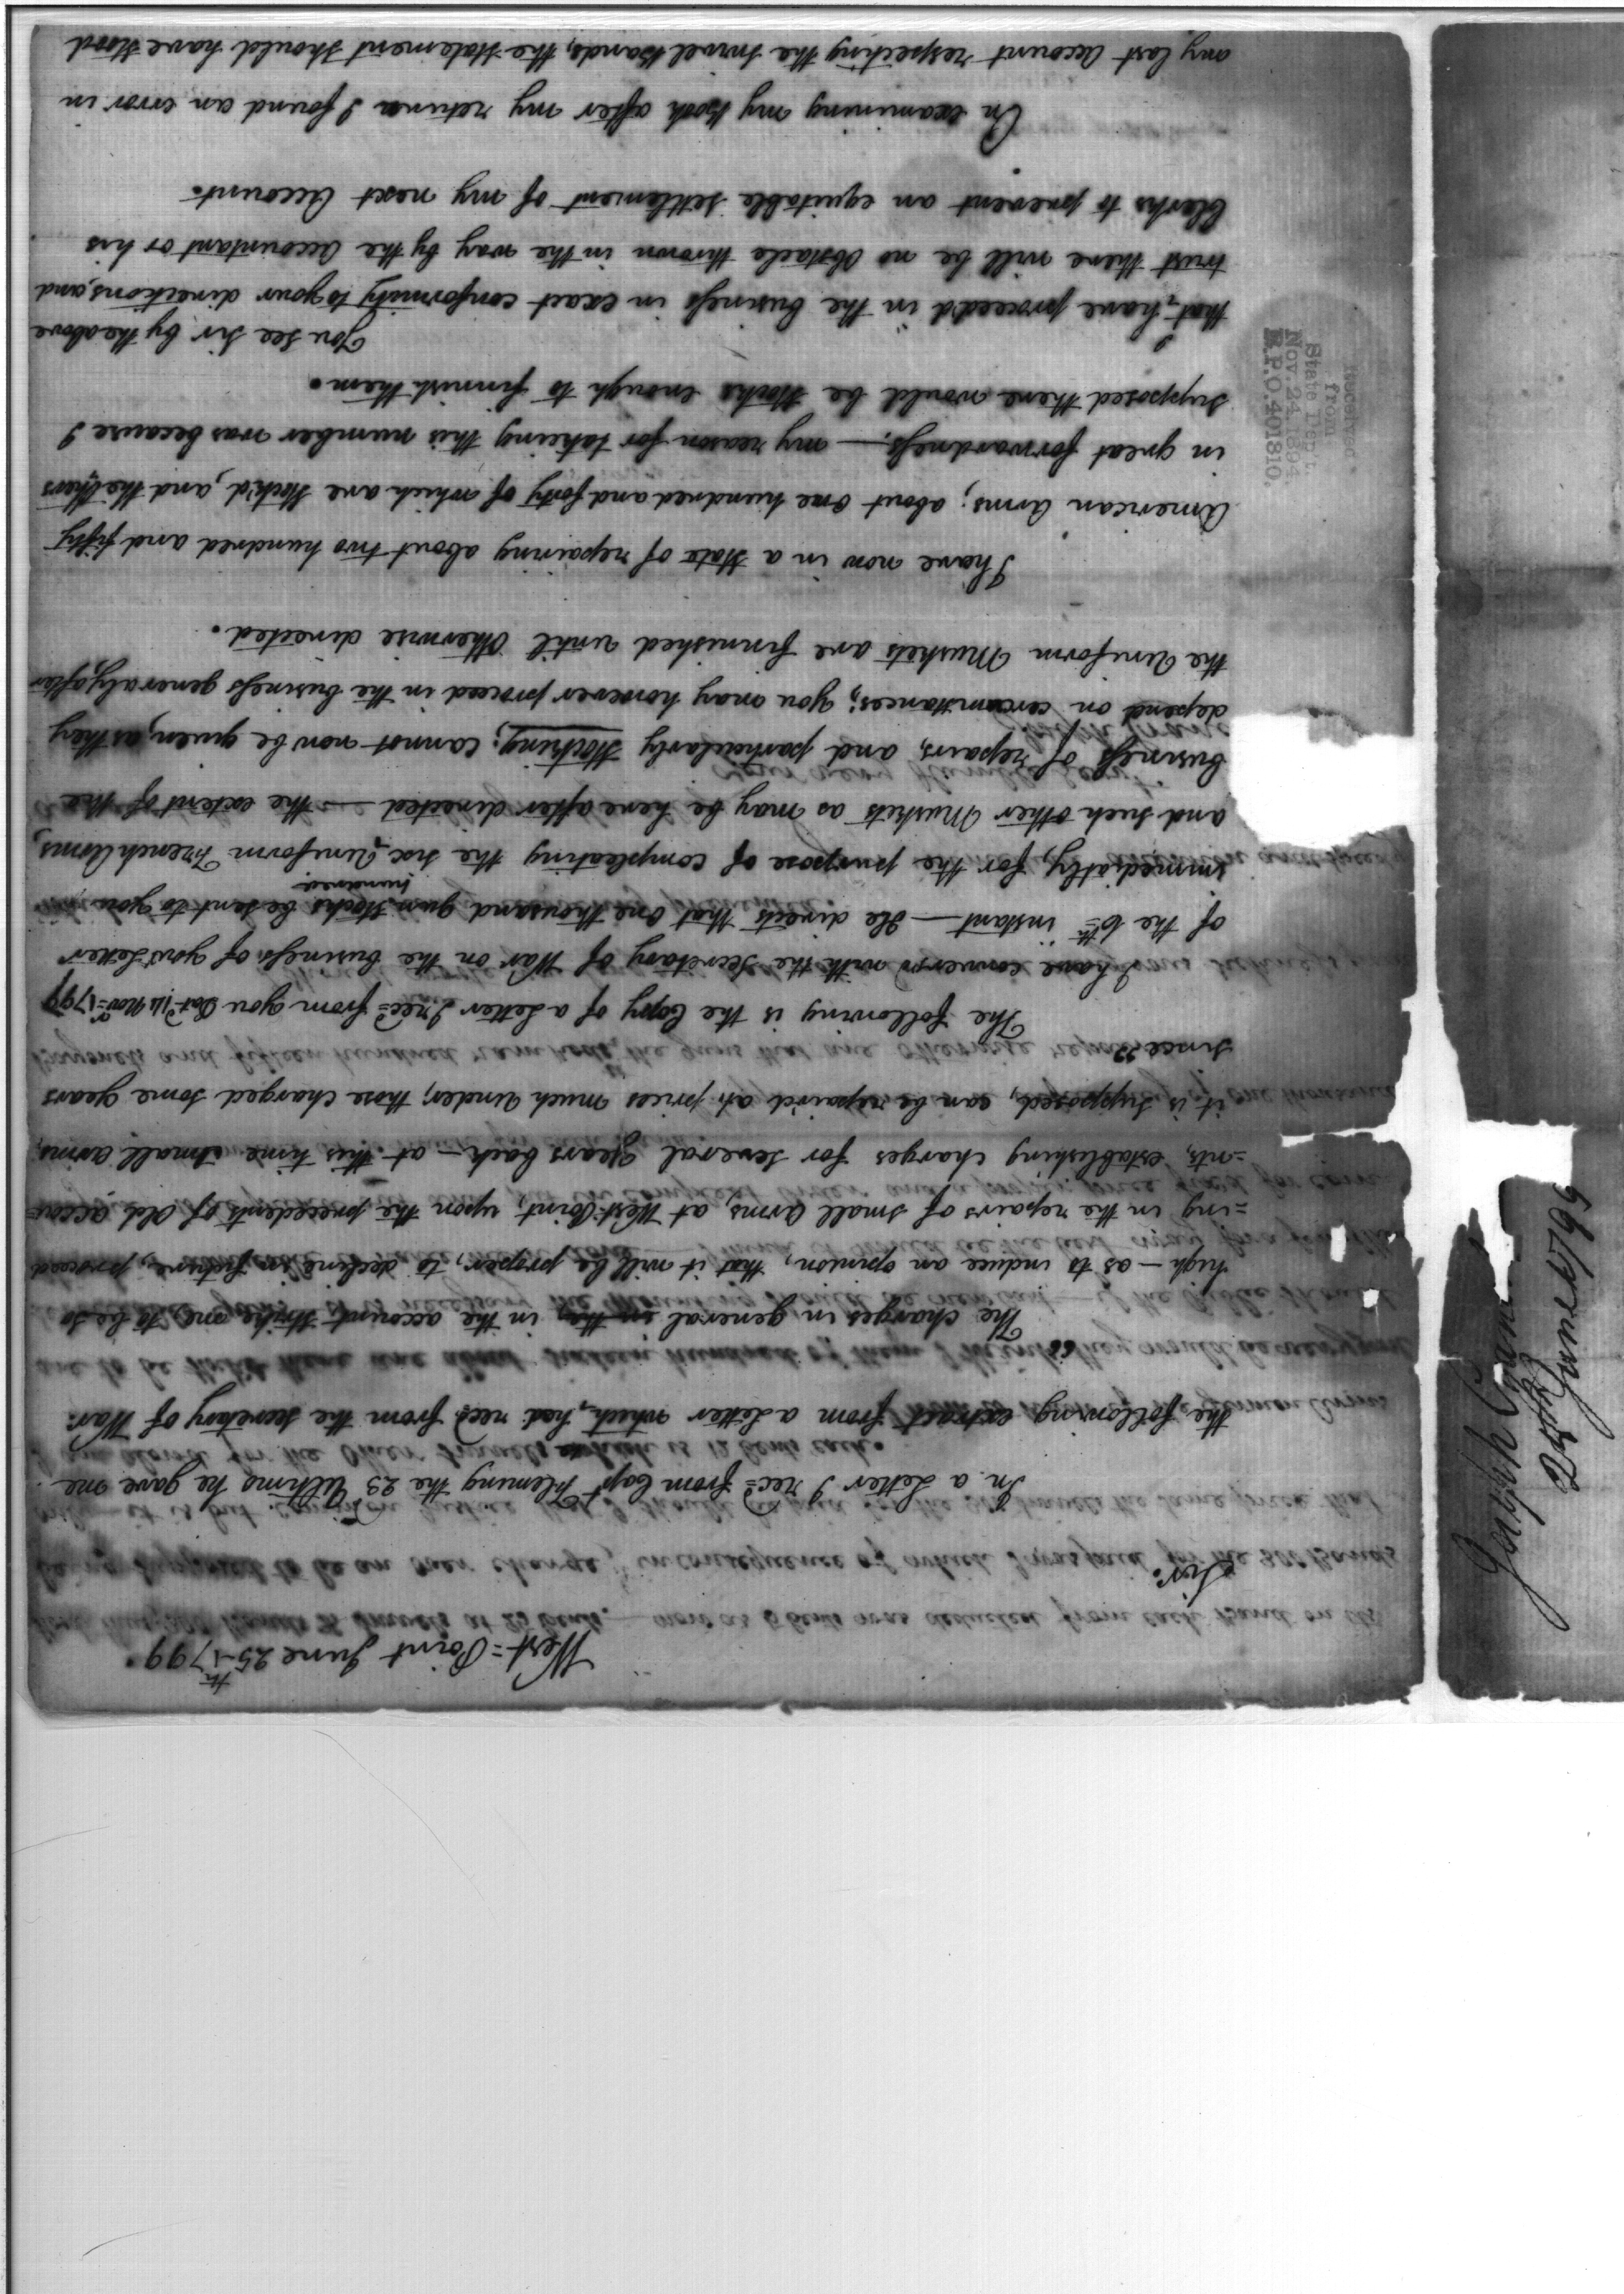 West=Point June 25th 1799.
Sir.
In a Letter I recd from Capt Fleming the 23 Ultimo he gave me
the following extract from a Letter which he had recd from the Secretary of War.
The charges in general in the account, strike me, to be so
high — as to induce an opinion, that it will be proper, to decline in future, proceed
=ing in the repairs of small arms, at West-Point, upon the precedents of Old accou-
=nts, establishing charges for several years back — at this time small arms,
it is supposed, can be repair'd at prices much under, those charged some years
since"
The following is the Copy of a Letter I recd from you Dat'd 14 Novr 1797
I have convers'd with the Secretary of War on the business of your Letter
of the 6th instant — He directs that One thousand gun Stocks be sent to you
immediatly, for the purpose of compleating the six hundred Uniform French Arms,
and such other Muskets as may be here after directed — the extent of the
business of repairs, and particularly Stocking; cannot now be given, as they
depend on cercumstances; you may however proceed in the business generaly after
the Uniform Muskets are finnished until Otherwise directed.
I have now in a State of repairing about two hundred and fifty
American Arms; about One hundred and forty of which are Stock'd, and the Others
in great forwardness. — my reason for takeing this number was because I
supposed there would be Stocks enough to finnish them.
You see Sir by the above
that I have proceed'd in the business in exact conformity to your directions, and
trust there will be no Obstacle thrown in the way by the Accountant or his
Clerks to prevent an equitable settlement of my next Account.
On examining my book after my return I found an error in
my last Account respecting the Swivel Bands, the Statement Should have Stood
Received
from
State Dep't.
Nov. 24, 1894
R.P.O. 401810.
Joseph
25th June 1799